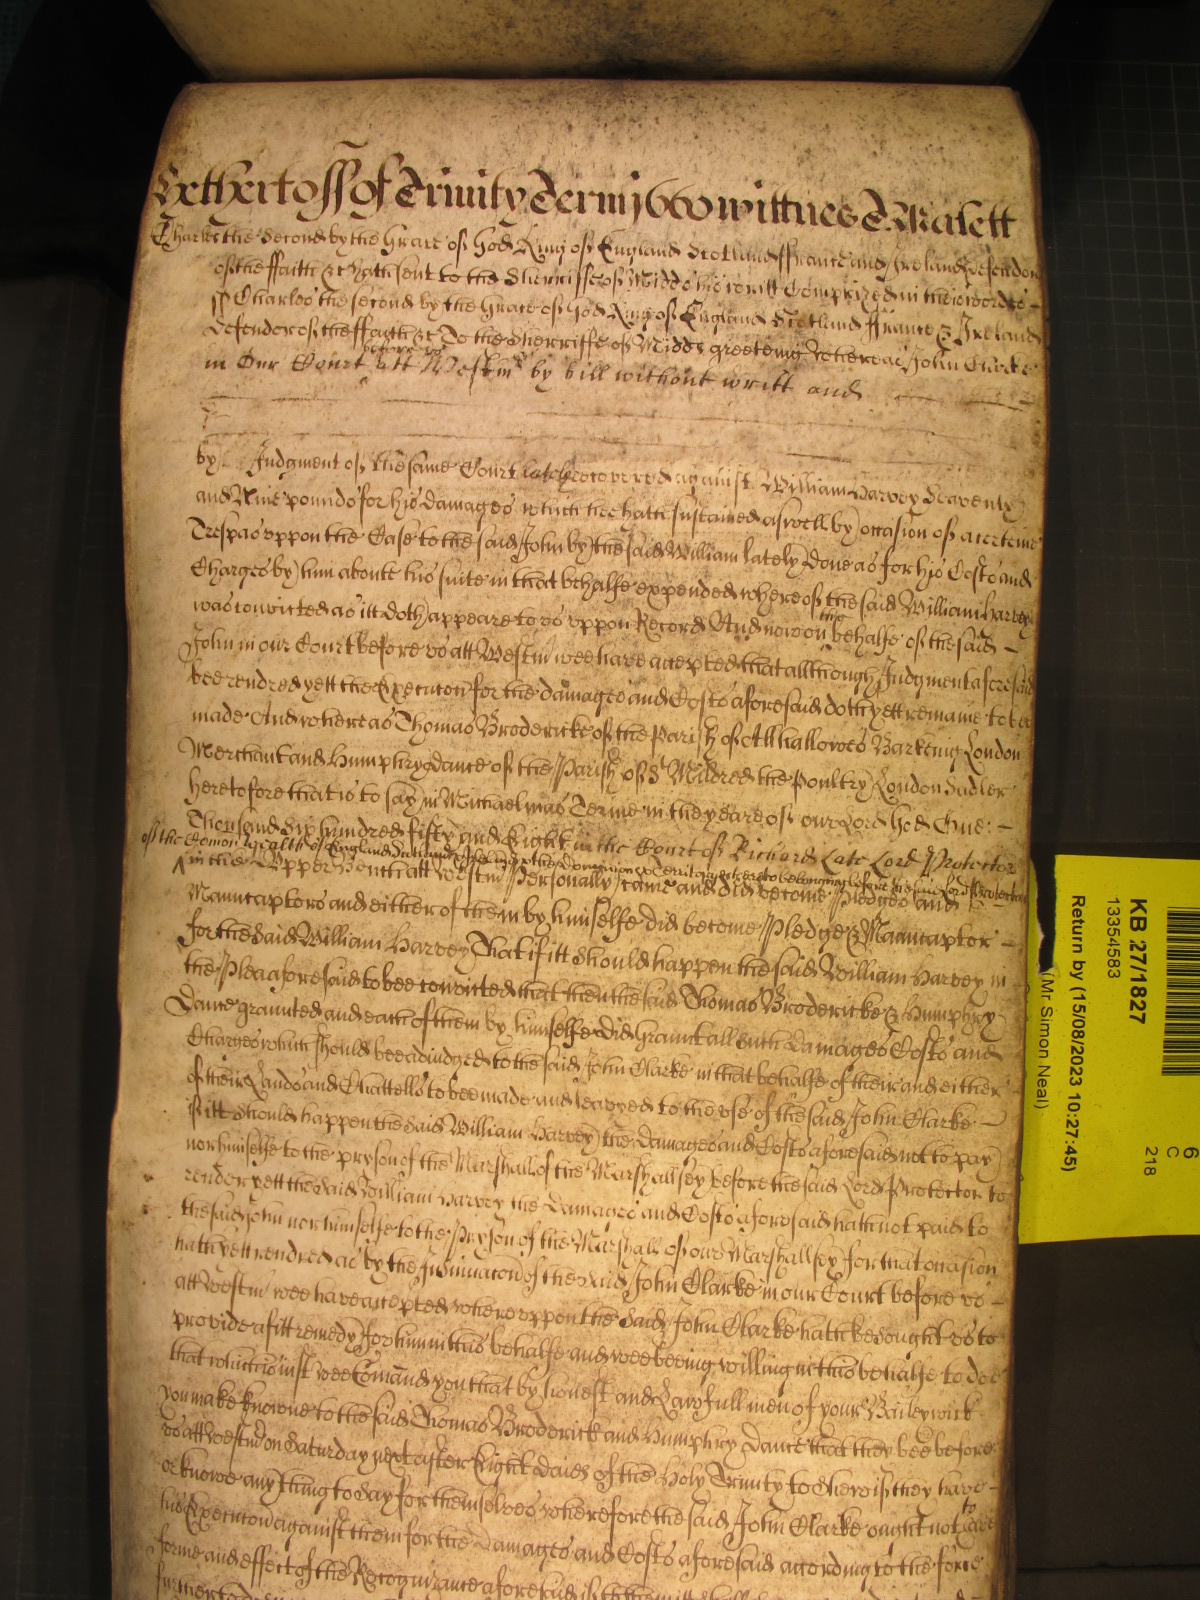 Yet hertofss of Trinity Term 1660 wittnes T. Malett
Charles the Second by the Grace of God King of England Scotland ffrance and Ireland defendor
of the ffaith &c hath sent to the Sherriffe of Midds his writt Comprized in these wordes
ss Charles the second by the Grace of God King of England Scotland ffrance & Ireland
defendor of the ffaith &c To the Sherriffe of Midds greeteing Whereas John Clarke
before us
in Our Court att Westm by bill without writt and
by Judgment of the same Court lately recovered against William Harvey Seaventy
and Nine pounds for his damages which hee hath sustained aswell by occasion of a certeine
Trespas uppon the Case to the said John by the said William lately done as for his Costs and
Charges by him about his suite in that behalfe expended whereof the said William Harvey
was convicted as itt doth appeare to us uppon Record And now on the behalfe of the said
John in our Court before us att Westm wee have accepted that allthough Judgment aforesaid
bee rendred yett the Execucon for the damages and Costs aforesaid doth yett remaine to bee
made And whereas Thomas Brodericke of the Parish of Allhallowes Barking London
Merchant and Humphry Dance of the Parish of St Mildred the Poultry London Sadler
heretofore that is to say in Michaelmas Terme in the yeare of our Lord God One
Thousand Six hundred fifty and Eight in the Court of Richard Late Lord Protector
of the Comon wealth of England Scotland & Ireland & the Dominions & Territories thereto belonging before the said Lord Protector
in the Upper Bench att Westm Personally came and did become Pledges and
Manucaptors and either of them by himselfe did become Pledge & Manucaptor
for the said William Harvey That if itt should happen the said William Harvey in
the Plea aforesaid to bee convicted that then the said Thomas Brodericke & Humphry
Dance graunted and each of them by himselfe did Graunt all such damages Costs and
Charges which should bee adiudged to the said John Clarke in that behalfe of their and either
of their Lands and Chattells to bee made and leavyed to the use of the said John Clarke
if itt should happen the said William Harvey the damages and Costs aforesaid not to pay
nor himselfe to the pryson of the Marshall of the Marshallsey before the said Lord Protector to
render yett the said William Harvey the damages and Costs aforesaid hath not paid to
the said John nor himselfe to the Pryson of the Marshall of our Marshallsey for that occasion
hath yett rendred as by the Insinuacon of the said John Clarke in our Court before us
att Westm wee have accepted whereuppon the said John Clarke hath besought us to
provide a fitt remedy for him in this behalfe and wee beeing willing in this behalfe to doe
that which is iust wee Comand you that by honest and Lawfull men of your Baileywick
you make knowne to the said Thomas Broderick and Humphry Dance that they bee before
us att Westm on Saturday next after Eight daies of the Holy Trinity to shew if they have
or knowe any thing to say for themselves wherefore the said John Clarke ought not to have
his Execucon against them for the Damages and Costs aforesaid according to the force
forme and effect of the Recognizance aforesaid if
further to
KB 27/1827
13354583
Return by (15/08/2023 10:27:45)
(Mr Simon Neal)
6
C
218